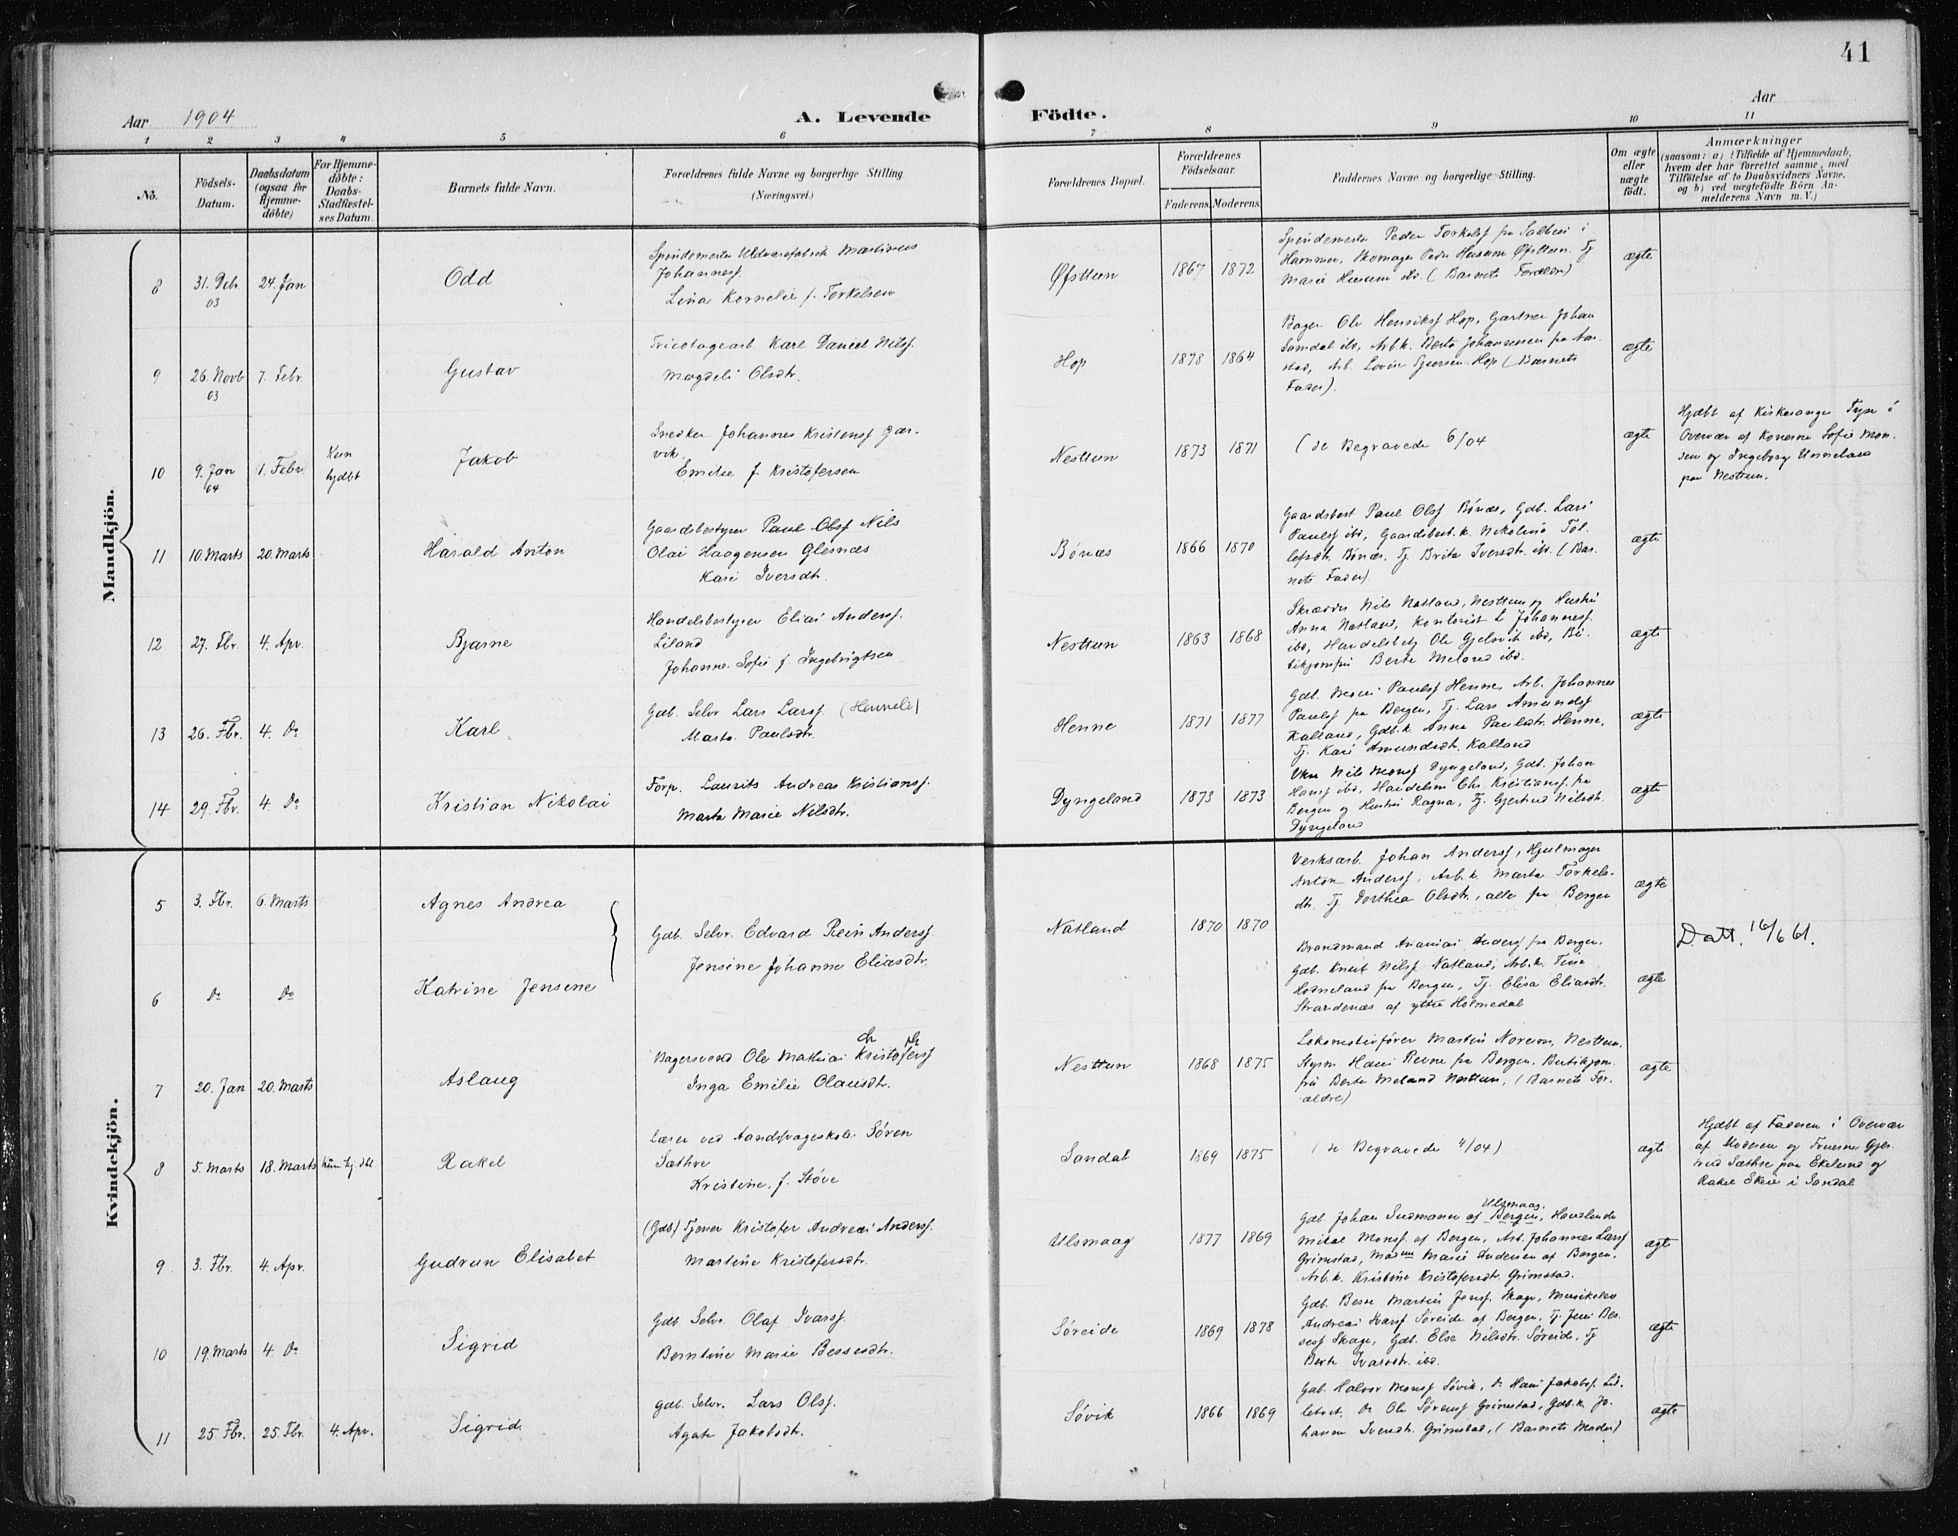 41
Aar 1904
A. Levende
Födte.
Aar
1 2 3 4 5 6 7 8 9 10 11
No.
Födsels-
Datum.
Daabsdatum
(ogsaa for
Hjemme-
döbte)
For Hjemme-
döbte:
Daabs-
Stadfæstel-
ses Datum.
Barnets fulde Navn.
Forældrenes fulde Navne og borgerlige Stilling
(Næringsvei.)
Forældrenes Bopæl.
Forældrenes
Födselsaar.
Faderens. Moderens.
Faddernes Navne og borgerlige Stilling.
Om ægte
eller
uægte
födt.
Anmærkninger
(saasom: a) i Tilfælde af Hjemmedaab,
hvem der har forrettet samme, med
Tilföielse af to Daabsvidners Navne.
og b) ved uægtefödte Börn An-
melderens Navn m. V.)
Mandkjön.
8 31. Dcbr. 03 24. Jan Odd
Spindemester Uldvarefabrik Martinus
Johannesf.
Lina Kornelie f. Torkelsen
Øfsttun 1867 1872
Spindemester Peder Torkelsf fra Salhus i
Hammer, Skomager Peder Husum Øfsttun. Tj
Marie Husum ibd. (Barnets Forældre)
ægte
9 26. Novb 03 7. Febr. Gustav
Tricotagearb. Karl Daniel Nilsf.
Magdeli Olsdtr.
Hop 1878 1864
Bager Ole Henriksf Hop, Gartner Johan
Samdal ibd, Arb.k. Berta Johannesen fra Aar-
stad, Arb. Hop (Barnets
Fader).
ægte
10 9. Jan 04 1. Febr. Kun hjdbt Jakob
Snedker Johannes Kristensf Gjær-
vik.
Emilie f. Kristofersen
Nesttun 1873 1871
(de Begravede 6/04
ægte
Hjdbt af Kirkesanger Tyse i
Overvær af Konerne Sofie Mon-
sen og Ingeborg
paa Nesttun.
11 10. Marts 20. Marts Harald Anton
Gaardsbestyrer Paul Olsf Nils
Olai Haagensen Glesnæs
Kari Iversdtr.
Bönæs 1866 1870
Gaardsbest Paul Olsf Bönæs, Gdb. Lars
Paulsf ibd, Gaardsbest.k. Nikoline Tol-
lefsdtr. Bönæs. Tj. Brita Iversdtr. ibd. (Bar-
nets Fader)
ægte
12 27. Fbr. 4. Apr. Bjarne
Handelsbestyrer Elias Andersf.
Liland
Johanne Sofie f. Ingebrigtsen
Nesttun 1863 1868
Skrædder Nils Natland, Nesttun og Hustru
Anna Natland, Kontorist L Johannesf.
ibd, Handelsbety Ole Gjelsvik ibd, Bu-
tikjomfru Berta Meland ibd.
ægte
13 26. Fbr. 4. Do Karl
Gdb. Selv Lars Larsf. (Hennele)
Marta Paulsdtr.
Henne 1871 1877
Gdb. Mons Paulsf Henne, Arb. Johannes
Paulsf fra Bergen, Tj. Lars Amundsf
Kalland, Gdb.k. Anna Paulsdtr. Henne,
Tj. Kari Amundsdtr. Kalland
ægte
14 29. Fbr. 4. Do Kristian Nikolai
Forp. Laurits Andreas Kristiansf.
Marta Marie Nilsdtr.
Dyngeland 1873 1873
Nils Monsf Dyngeland, Gdb. Johan
Hansf ibd, Handelsm Chr. Kristiansf. fra
Bergen og Hustru Ragna, Tj. Gjertrud Nilsdtr.
Dyngeland
ægte
Kvindekjön.
5 3. Fbr. 6. Marts Agnes Andrea
Verksarb. Johan Andersf, Hjulmager
Anton Andersf, Arb.k. Marta Torkels-
dtr. Tj. Dorthea Olsdtr., alle fra Bergen
ægte
Gdb. Selvr. Edvard Rein Andersf.
Jensine Johanne Eliasdtr.
Natland 1870 1870
Datt. 16/6 61.
6 Do Do Katrine Jensine
Brandmand Ananias Andersf fra Bergen.
Gdb. Knut Nilsf Natland, Arb.k. Tina
Hodneland fra Bergen, Tj. Elisa Eliasdtr.
Strandenæs af ytre Holmedal
ægte
7 20. Jan 20. Marts Aslaug
Bagersvend Ole Mathias Kristofersf
Ch ph
Inga Emilie Olausdtr.
Nesttun 1868 1875
Lokomotivförer Martin Noreim, Nesttun.
Styrm Hans Revne fra Bergen. Butikjom-
fru Berta Meland Nesttun. (Barnets For-
ældre)
ægte
8 5. Marts 18. Marts kun hj. dbt Rakel
Lærer ved Aandssvageskole Sören
Sæthre
Kristine, f. Støve
Sandal 1869 1875
(de Begravede 4/04)
ægte
Hjdbt af Faderen i Overvær
af Moderen og Fruerne Gjer-
trud Sæthre paa Ekelund og
Rakel Skeie i Sandal
9 3. Fbr. 4. Apr. Gudrun Elisabet
(Gdb) Tjener Kristofer Andreas Andersf.
Martine Kristofersdtr.
Ulsmaag 1877 1869
Ulsmaag.
Gdb. Johan Snemann af Bergen, Handlende
Mikal Monsf af Bergen, Arb. Johannes Larsf
Grimstad, Madm Marie Andersen af Bergen.
Arb.k. Kristine Kristofersdtr. Grimstad.
ægte
10 19. Marts 4. Do Sigrid
Gdb Selv. Olaf Ivarsf.
Berntine Marie Bessesdtr.
Söreide 1869 1878
Gdb. Besse Martin Jensf Skage, Musikelev
Andreas Ivarsf Söreide af Bergen, Tj. Jens Bes-
sesf Skage, Gdb. Else Nilsdtr. Söreide, Tj.
Berta Ivarsdtr. ibd.
ægte
11 25. Fbr. 25. Fbr. 4. Apr. Sigrid
Gdb. Selv. Lars Olsf.
Agate Jakobsdtr.
Søvik 1866 1869
Gdb. Halvor Monsf Søvik, Do Hans Jakobsf. Lid-
letvet. Do Ole Sörensf Grimstad, Gdb.k. Jo-
hanne Svendtr. Grimstad, (Barnets Moder)
ægte